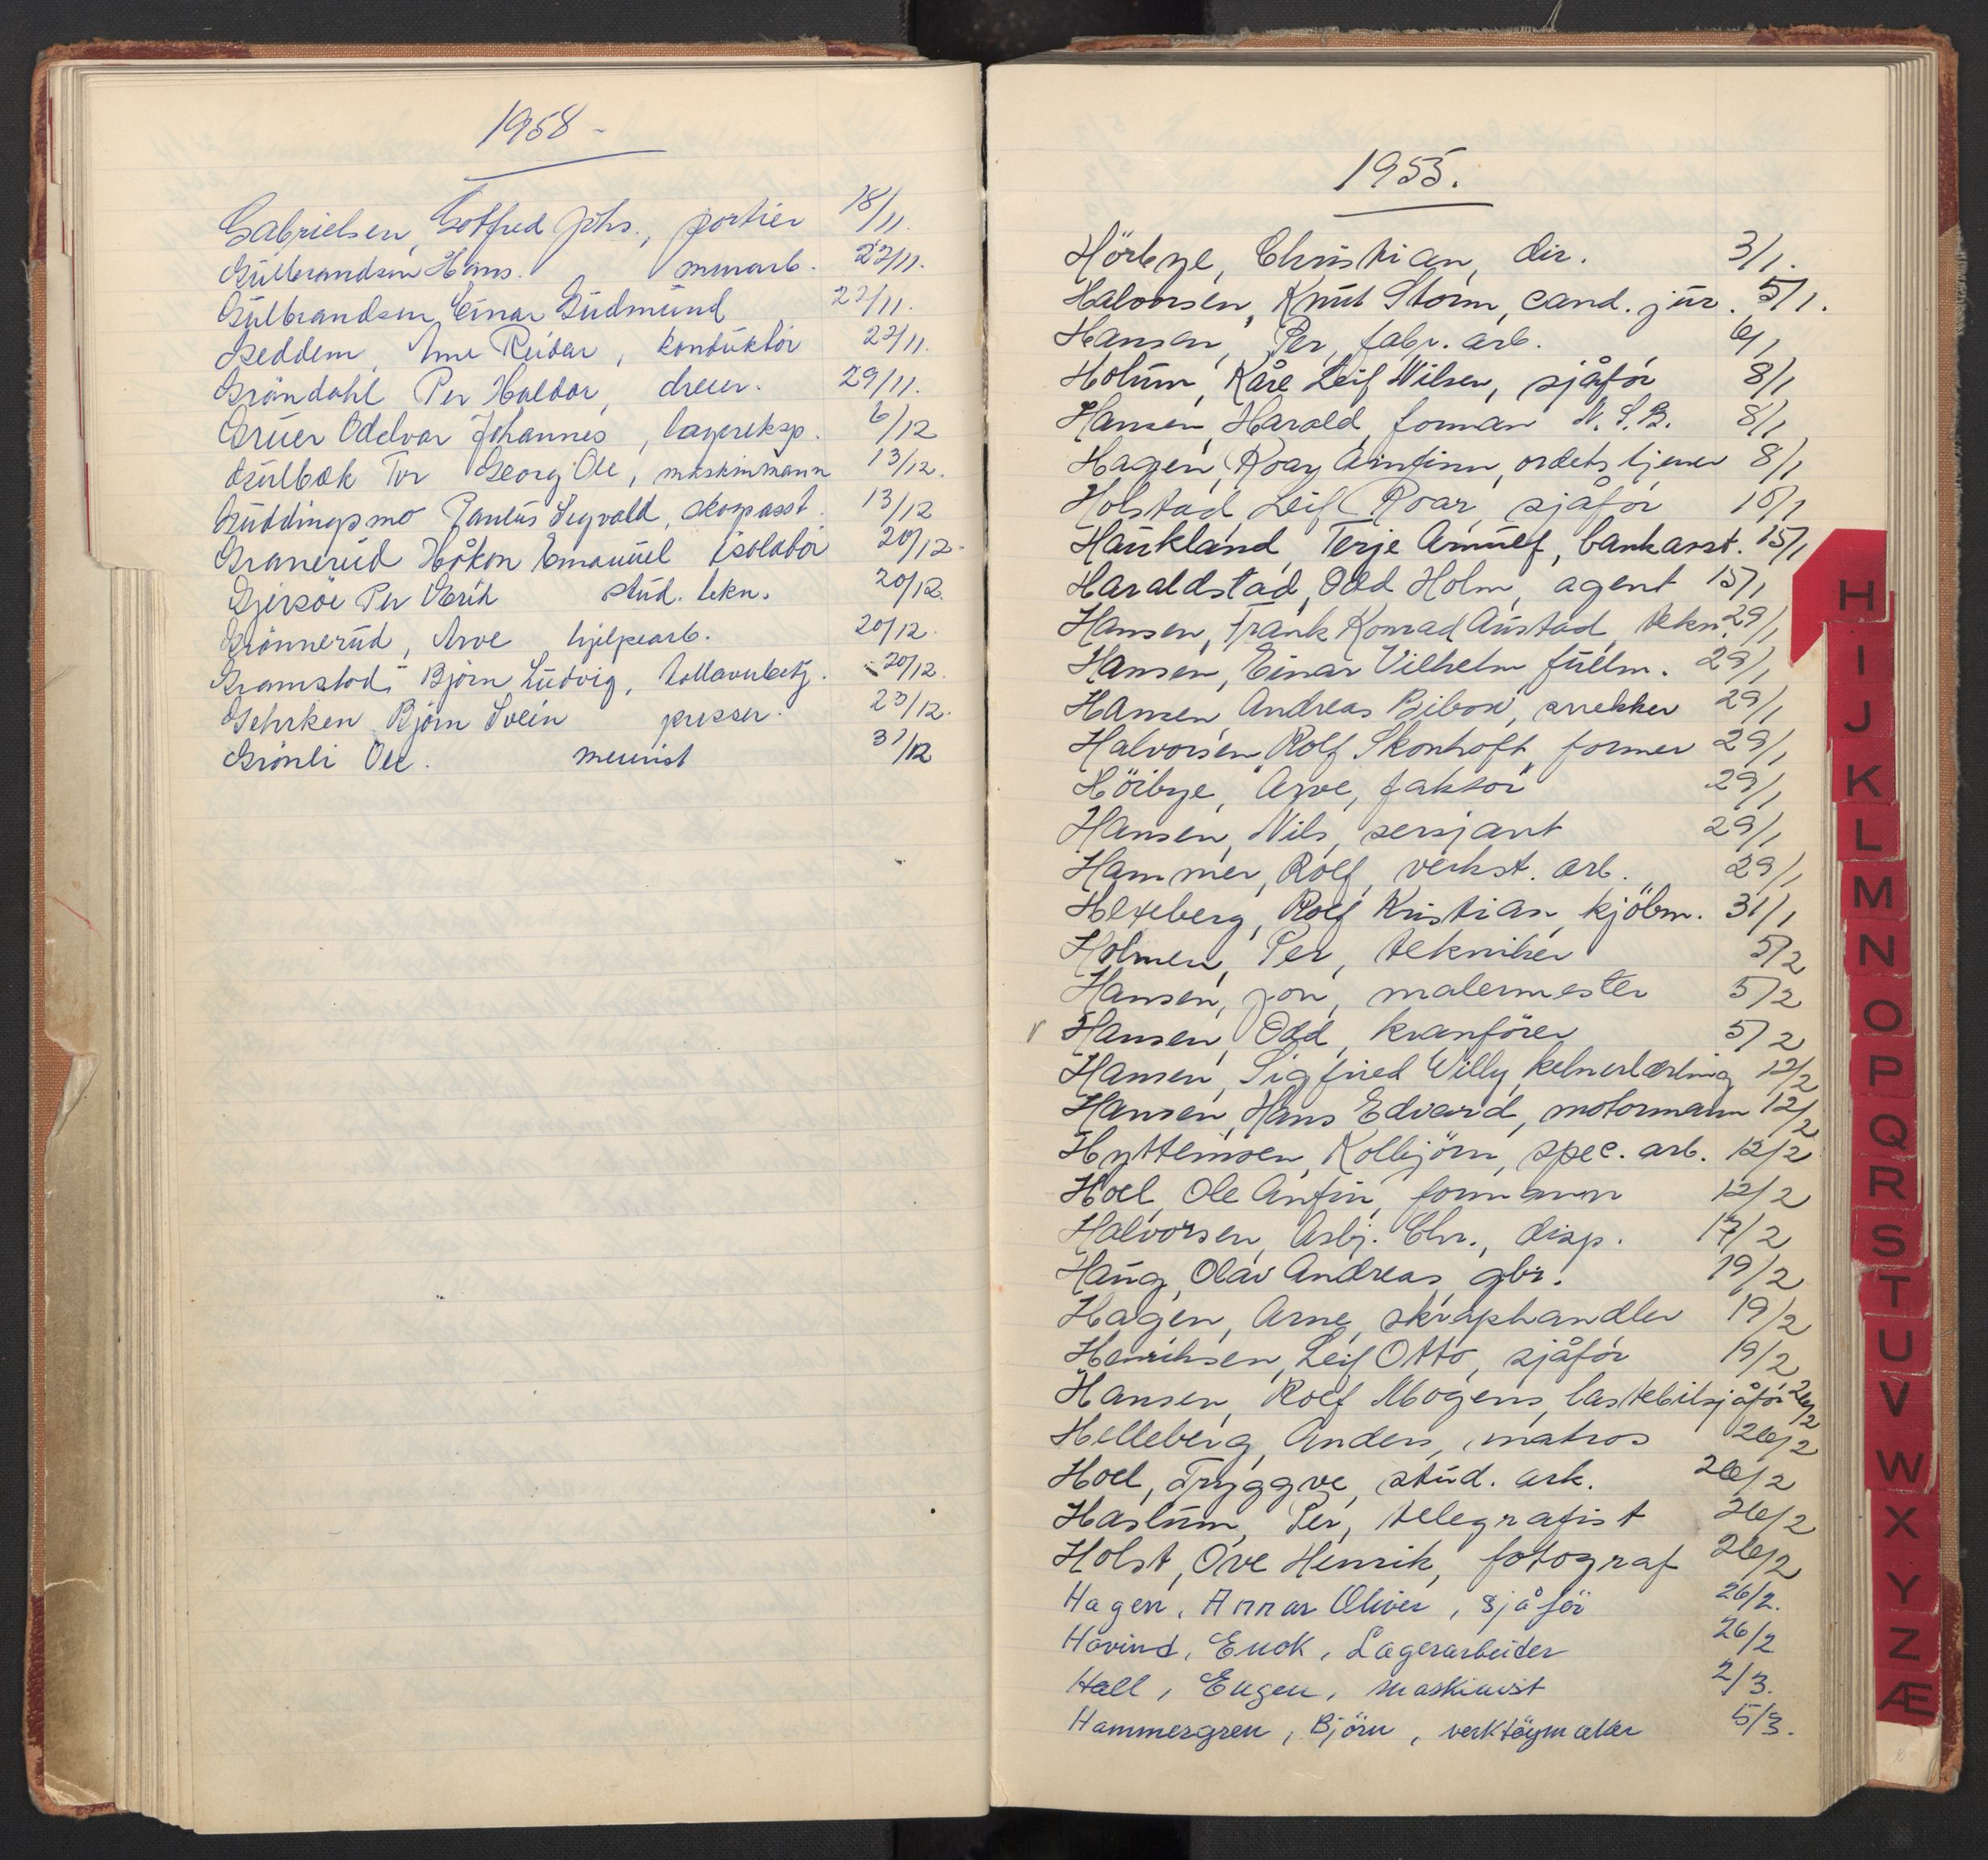 1958 -
Gabrielsen, Gotfred Johs., portier 18/11.
Gulbrandsen Hans. murarb. 22/11.
Gulbrandsen, Einar Gudmund 22/11.
Geddem, Arne Reidar, konduktör 22/11.
Gröndahl Per Haldor, dreier. 29/11.
Gruer Oddvar Johannes, lagereksp. 6/12
Gulbæk Tor Georg Ole, maskinmann 13/12.
Guddingsmo Paulus Sigvald, skogsasst. 13/12
Granerud Håkon Emanuel isolatör 20/12.
Gjersöe Per Erik stud. tekn. 20/12.
Grönnerud, Arve hjelpearb. 20/12.
Gramstad, Björn Ludvig, tolloverbetj. 20/12.
Gehrken Björn Svein presser. 23/12.
Grönli Ole. 31/12
1955.
Hörbye, Christian, dir. 3/1.
Halvorsen, Knut Storm, cand. jur. 5/1.
Hansen, Per, fabr. arb. 6/1
Holum, Kåre Leif Wilsen, sjåför 8/1
Hansen, Harald, forman N.S.B. 8/1
Hagen, Roay Arnfinn, ordets tjener 8/1
Holstad, Leif Roar, sjåför 10/1
Haukland, Terje Arnulf, bankasst. 15/1
Haraldstad, Odd Holm, agent 15/1
Hansen, Frank Konrad Austad, tekn. 29/1
Hansen, Einar Vilhelm, fullm. 29/1
Hansen Andreas Bibow, snekker 29/1
Halvorsen, Rolf Skonhoft, former 29/1
Höibye, Arve, faktor 29/1
Hansen, Nils, sersjant 29/1
Hammer, Rolf, verkst. arb. 29/1
Hexeberg, Rolf Kristian, kjöbm. 31/1
Holmen, Per, tekniker 5/2
Hansen, Jon, malermester 5/2
Hansen, Odd, kranförer 5/2
Hansen, Sigfried Willy, kelnerlærling 12/2
Hansen, Hans Edvard, motormann 12/2
Hyttemoen, Kolbjörn, spec. arb. 12/2
Hoel, Ole Anfin, formann 12/2
Halvorsen, Asbj. Chr., disp. 17/2
Haug, Olav Andreas, gbr. 19/2
Hagen, Arne, skraphandler 19/2
Henriksen, Leif Otto, sjåför 19/2
Hansen, Rolf Mogens, lastebilsjåför 26/2
Helleberg, Anders, matros 26/2
Hoel, Tryggve, stud. ark. 26/2
Haslum, Per, telegrafist 26/2
Holst, Ove Henrik, fotograf 26/2
Hagen, Annar Oliver, sjåför 26/2.
Hovind, Enok, Lagerarbeider 26/2
Hall, Eugen, maskinist 2/3.
Hammergren, Björn, verktöymaker 5/3.
H
I
J
K
L
M
N
O
P
Q
R
S
T
U
V
W
X
Y
Z
Æ